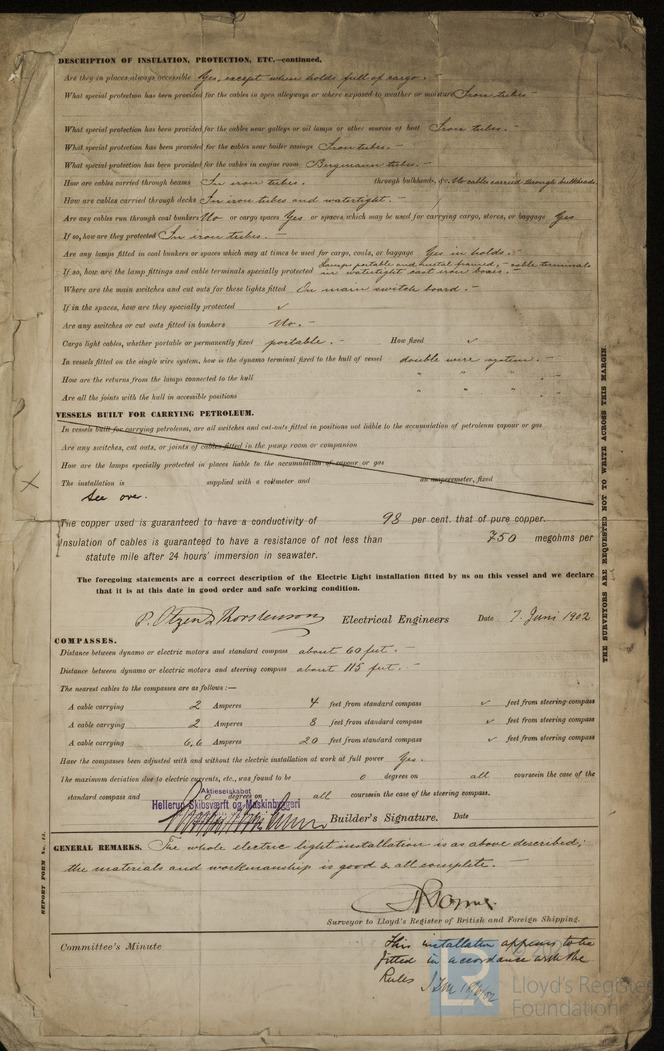 DESCRIPTION OF INSULATION, PROTECTION, ETC.—continued.
Are they in places always accessible Yes, except when holds full of cargo. —
What special protection has been provided for the cables in open alleyways or where exposed to weather or moisture Iron tubes —
What special protection has been provided for the cables near galleys or oil lamps or other sources of heat Iron tubes. —
What special protection has been provided for the cables near boiler casings Iron tubes. —
What special protection has been provided for the cables in engine room Bergmann tubes. —
How are cables carried through beams In iron tubes. through bulkheads, &c. No cables carried through bulkheads.
How are cables carried through decks In iron tubes and watertight. —
Are any cables run through coal bunkers No or cargo spaces Yes or spaces which may be used for carrying cargo, stores, or baggage Yes
If so, how are they protected In iron tubes. —
Are any lamps fitted in coal bunkers or spaces which may at times be used for cargo, coals, or baggage Yes in holds. —
If so, how are the lamp fittings and cable terminals specially protected Lamps portable and metal framed, — cable terminals
in watertight cast iron boxes. —
Where are the main switches and cut outs for these lights fitted On main switch board. —
If in the spaces, how are they specially protected ✓
Are any switches or cut outs fitted in bunkers No. —
Cargo light cables, whether portable or permanently fixed portable. — How fixed ✓
In vessels fitted on the single wire system, how is the dynamo terminal fixed to the hull of vessel double wire system. —
How are the returns from the lamps connected to the hull " " " . —
Are all the joints with the hull in accessible positions " " " . —
VESSELS BUILT FOR CARRYING PETROLEUM.
In vessels built for carrying petroleum, are all switches and cut-outs fitted in positions not liable to the accumulation of petroleum vapour or gas
Are any switches, cut outs, or joints of cables fitted in the pump room or companion
How are the lamps specially protected in places liable to the accumulation of vapour or gas
The installation is supplied with a voltmeter and an amperemeter, fixed
See over.
The copper used is guaranteed to have a conductivity of 98 per cent. that of pure copper.
Insulation of cables is guaranteed to have a resistance of not less than 750 megohms per
statute mile after 24 hours' immersion in seawater.
The foregoing statements are a correct description of the Electric Light installation fitted by us on this vessel and we declare
that it is at this date in good order and safe working condition.
Electrical Engineers Date 7. Juni 1902
COMPASSES.
Distance between dynamo or electric motors and standard compass about 60 feet. —
Distance between dynamo or electric motors and steering compass about 115 feet. —
The nearest cables to the compasses are as follows:—
A cable carrying 2 Amperes 4 feet from standard compass ✓ feet from steering compass
A cable carrying 2 Amperes 8 feet from standard compass ✓ feet from steering compass
A cable carrying 6,6 Amperes 20 feet from standard compass ✓ feet from steering compass
Have the compasses been adjusted with and without the electric installation at work at full power Yes. —
The maximum deviation due to electric currents, etc., was found to be 0 degrees on all course in the case of the
standard compass and 0 degrees on all course in the case of the steering compass.
Aktieselskabet
Hellerup Skibsværft og Maskinbyggeri
Builder's Signature. Date
GENERAL REMARKS. The whole electric light installation is as above described,
the materials and workmanship is good & all complete. —
Surveyor to Lloyd's Register of British and Foreign Shipping.
Committee's Minute
This installation appears to be
fitted in accordance with the
Rules
THE SURVEYORS ARE REQUESTED NOT TO WRITE ACROSS THIS MARGIN.
REPORT FORM No. 13.
LR
Lloyd's Register
Foundation